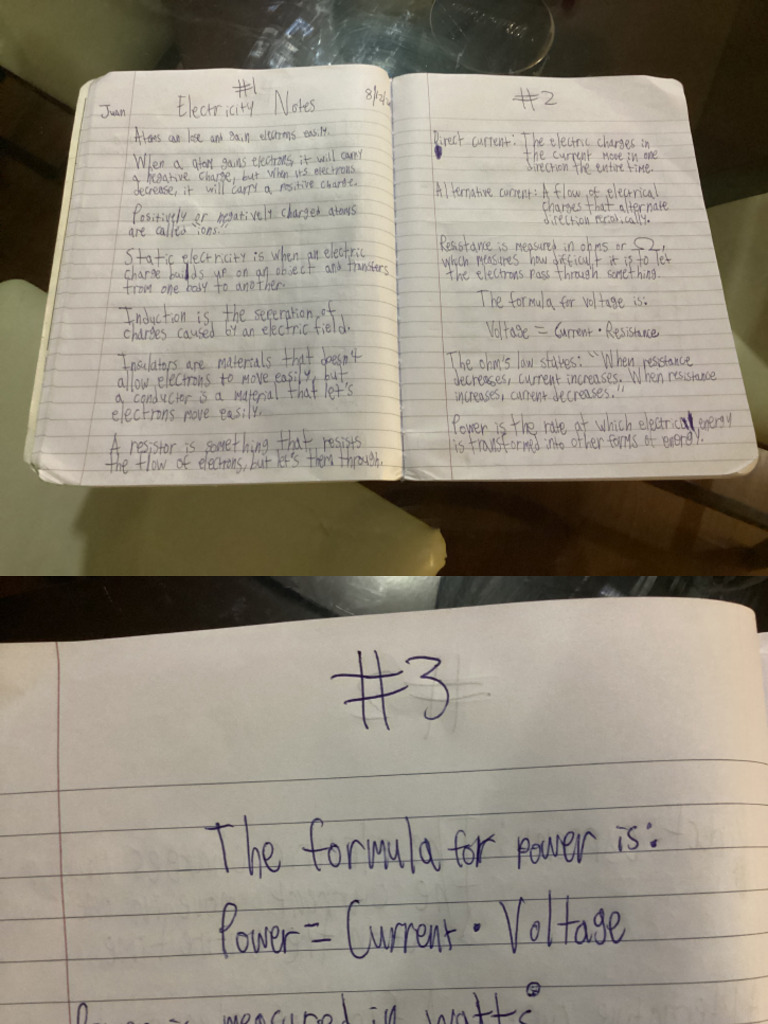 #1
Juan
Electricity Notes
Atoms can lose and gain electrons easily.
When a atom gains electrons, it will carry
a negative charge, but when its electrons
decrease, it will carry a positive charge.
Positively or negatively charged atoms
are called "ions."
Static electricity is when an electric
charge builds up on an object and transfers
from one body to another.
Induction is the seperation of
charges caused by an electric field.
Insulators are materials that doesn't
allow electrons to move easily, but
a conductor is a material that let's
electrons move easily.
A resistor is something that resists
the flow of electrons, but let's them through.
#2
Direct current: The electric charges in
the current move in one
direction the entire time.
Alternative current: A flow of electrical
charges that alternate
direction
Resistance is measured in ohms or Ω,
which measures how difficult it is to let
the electrons pass through something.
The formula for voltage is:
Voltage = Current · Resistance
The ohm's law states: "When resistance
decreases, current increases. When resistance
increases, current decreases."
Power is the rate at which electrical energy
is transformed into other forms of energy.
#3
The formula for power is:
Power = Current · Voltage
Power is measured in watts